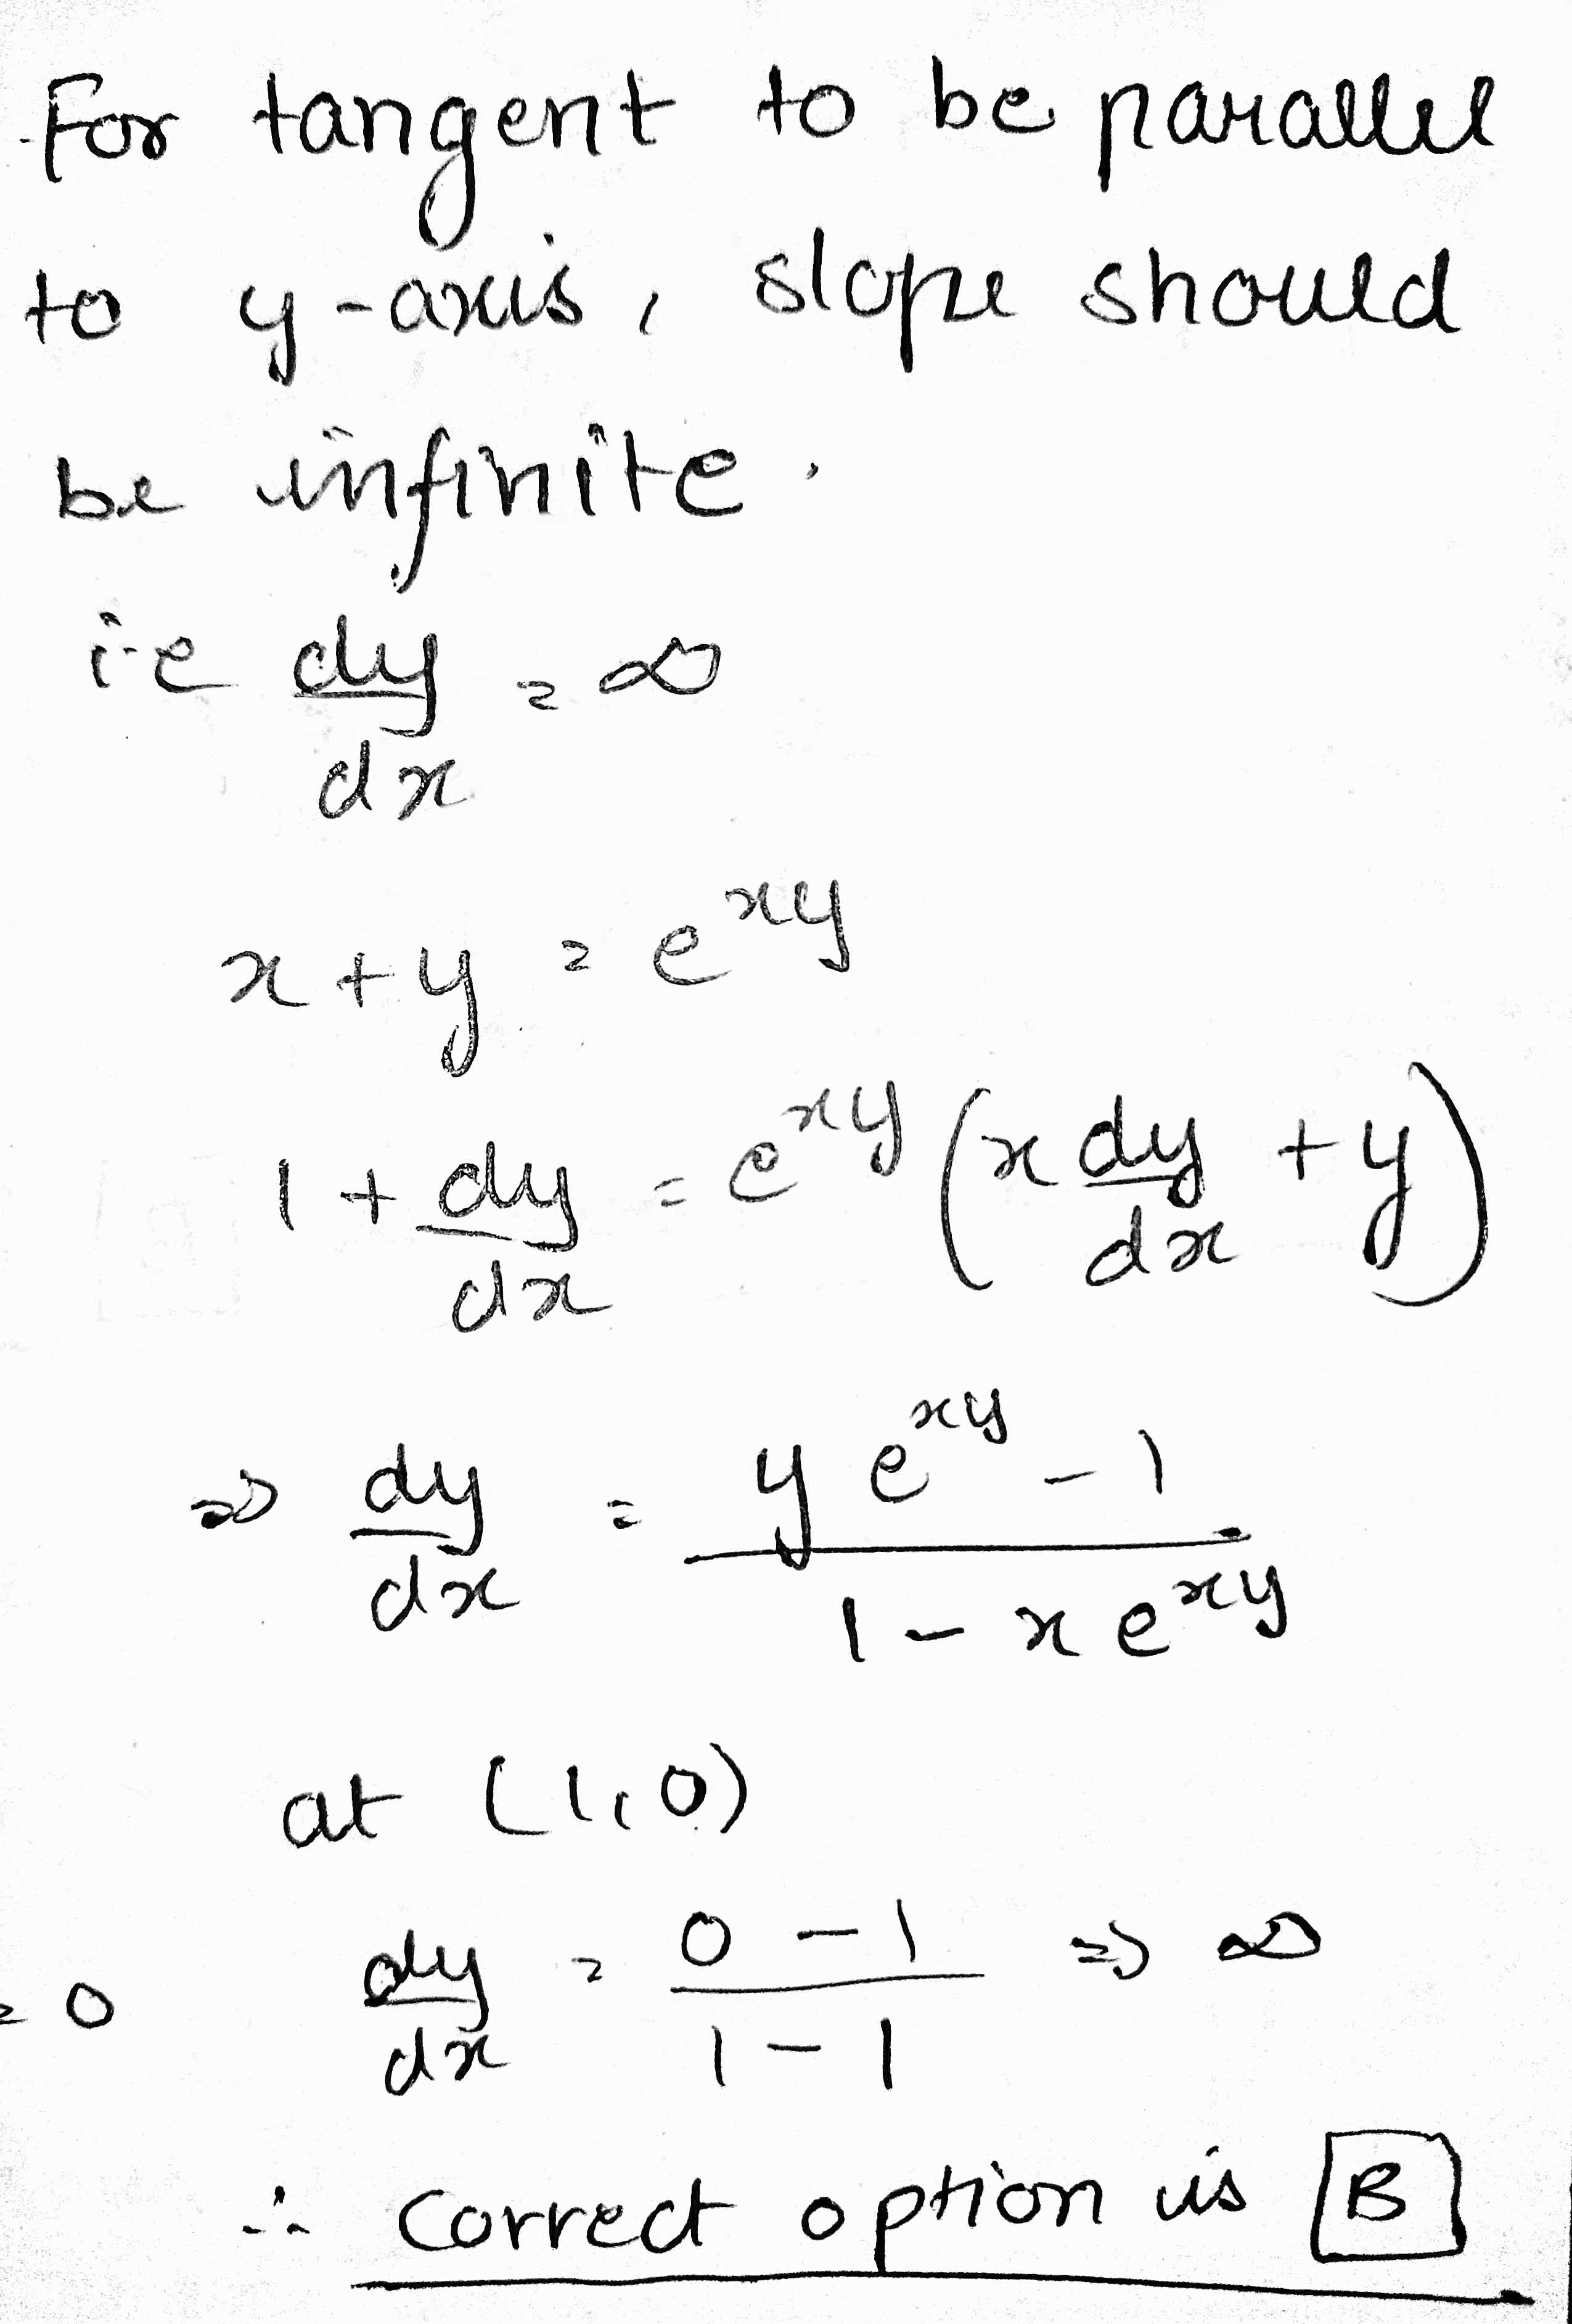 For tangent to be parallel
to y-axis, slope should
be infinite.
i.e dy/dx = ∞
x + y = e^xy
1 + dy/dx = e^xy (x dy/dx + y)
⇒ dy/dx = (y e^xy - 1)/(1 - x e^xy)
at (1,0)
= 0
dy/dx = (0 - 1)/(1 - 1) ⇒ ∞
∴ correct option is B